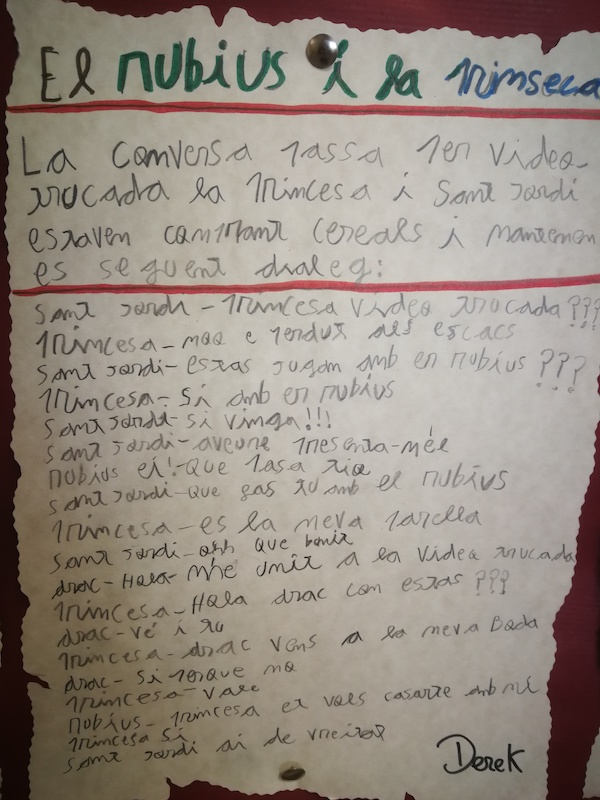 El nubius i la princesa
La conversa passa per video
trucada la princesa i Sant Jordi
estaven comprant cereals i mantenen
es seguent dialeg:
Sant Jordi - Princesa video trucada???
Princesa - noo e perdut als escacs
Sant Jordi - estas jugan amb en nubius???
Princesa - Si amb en nubius
Sant Jordi - si vinga!!!
Sant Jordi - aveure presenta-mél
nubius ei! - Que pasa tio
Sant Jordi - que fas tu amb el nubius
Princesa - es la meva parella
Sant Jordi - ohh que bonit
drac - Hola m'he unit a la video trucada
Princesa - Hola drac com estas???
drac - vé i tu
Princesa - drac vens a la meva Boda
drac - Si perque no
Princesa - vale
nubius - princesa et vols casarte amb mi
Princesa Si
Sant Jordi ai de
Derek